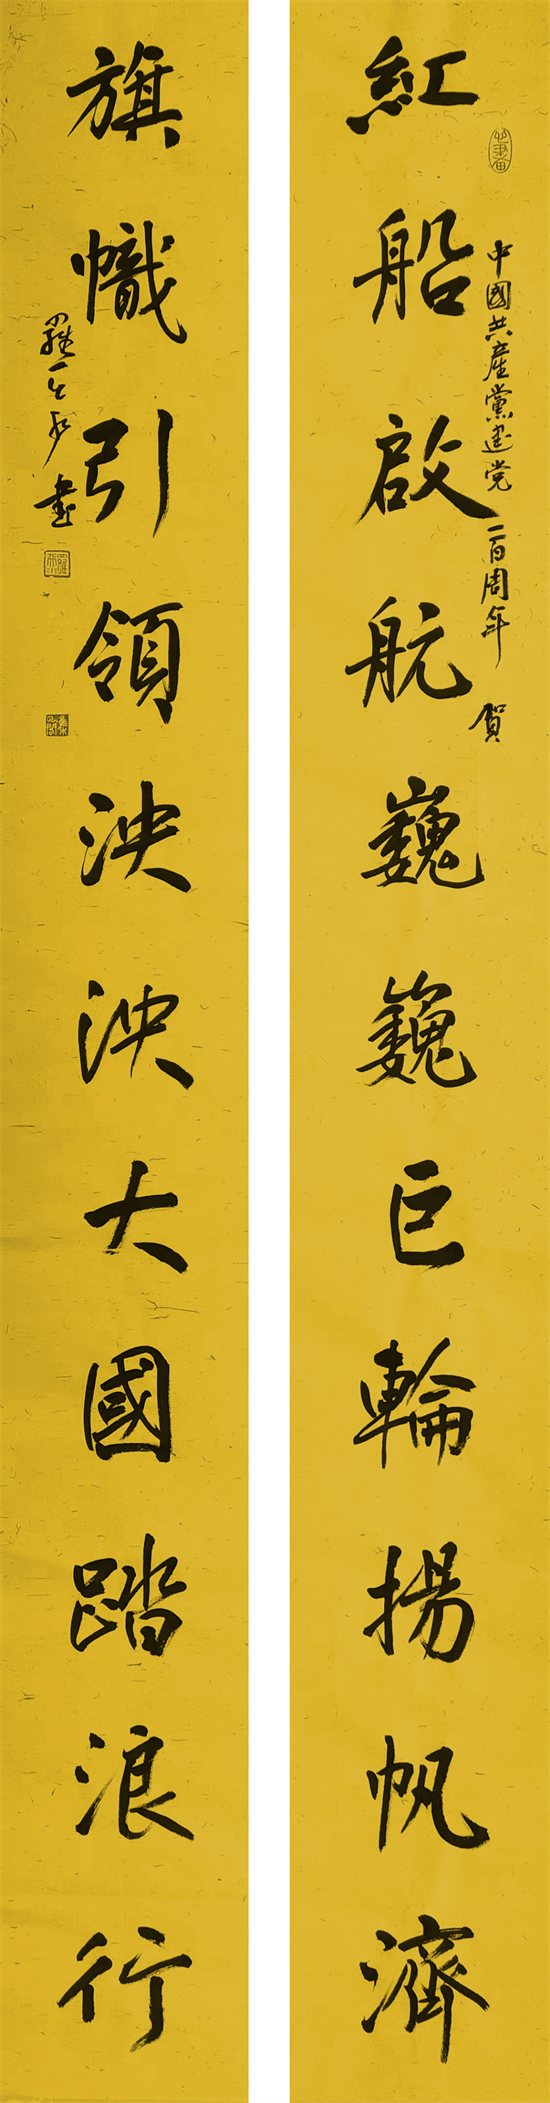 紅船啟航巍巍巨輪揚帆濟
中國共產黨建党一百周年 賀
旗幟引領泱泱大國踏浪行
羅 書